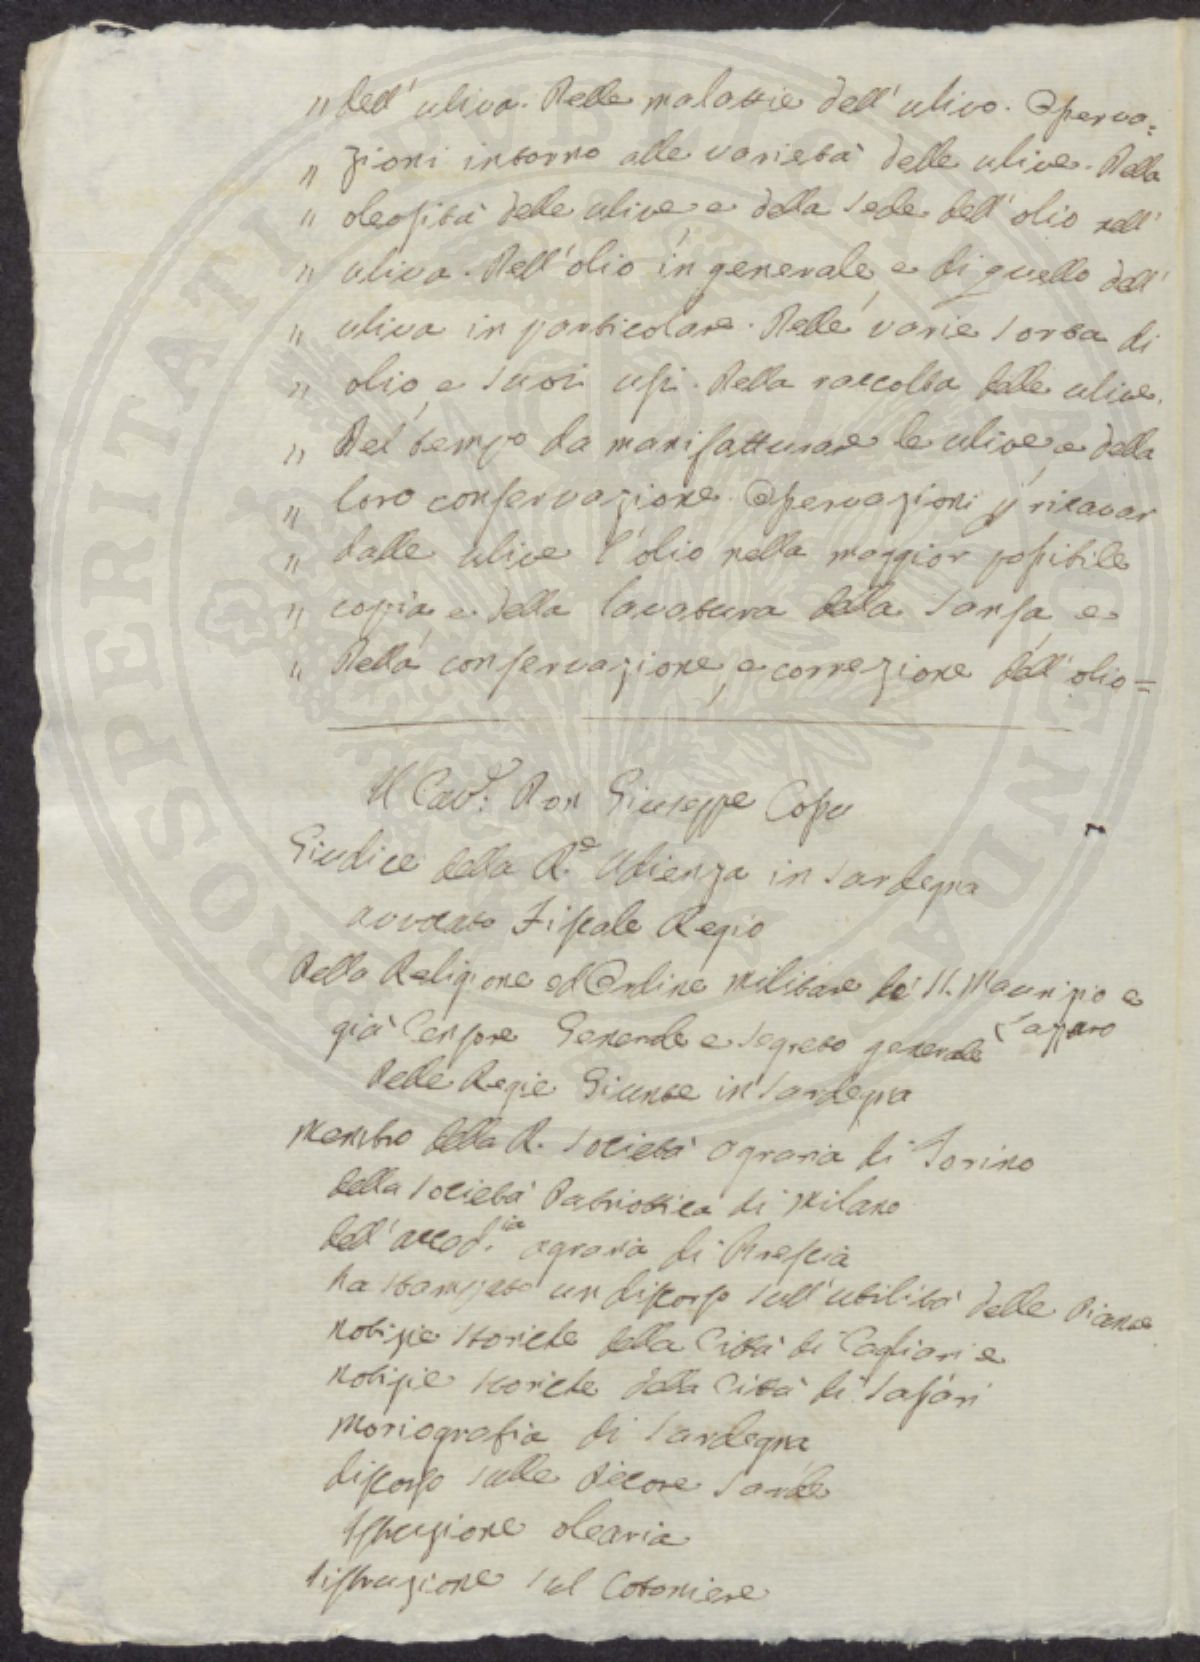 " dell' uliva. Delle malattie dell' ulivo. Osserva=
" zioni intorno alle varietà delle ulive. Della
" oleosità delle ulive, e della sede dell' olio nell'
" uliva. Dell' olio in generale, e di quello dell'
" uliva in particolare. Delle varie sorta di
" olio, e suoi usi. Della raccolta delle ulive.
" Del tempo da manifatturare le ulive, e della
" loro conservazione. Osservazioni p ricavar
" dalle ulive l'olio nella maggior possibile
" copia, e della lavatura della sansa e
" Della conservazione, e correzione dell' olio =
Il Cav.e Don Giuseppe Cossu
Giudice della R.e Udienza in Sardegna
avvocato Fiscale Regio
Della Religione ed Ordine Militare de' SS. Maurizio e Lazzaro
già Censore Generale e Segreto generale
delle Regie Giunte in Sardegna
Membro della R. Società agraria di Torino
della Società Patriottica di Milano
dell' accad.ia agraria di Brescia
ha stampato un discorso sull' utilità delle Piante
notizie storiche della Città di Cagliari e
notizie storiche della Città di Sassari
Moriografia di Sardegna
discorso sulle Pecore Sarde
Istruzione olearia
Istruzione sul Cotoniere
PROSPERITATI PUBLICAE AUGENDAE